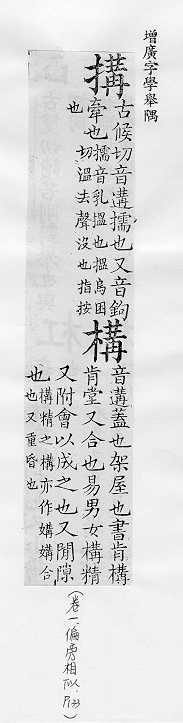 增廣字學舉隅
搆
古候切音遘擩也又音鉤
牽也擩音乳搵也搵烏困
切溫去聲沒也指按
也
構
音遘蓋也架屋也書肯構
肯堂又合也易男女構精
又附會以成之也又閒隙
也構精之構亦作媾媾合
也又重昏也
(卷一、偏旁相似, P.33)